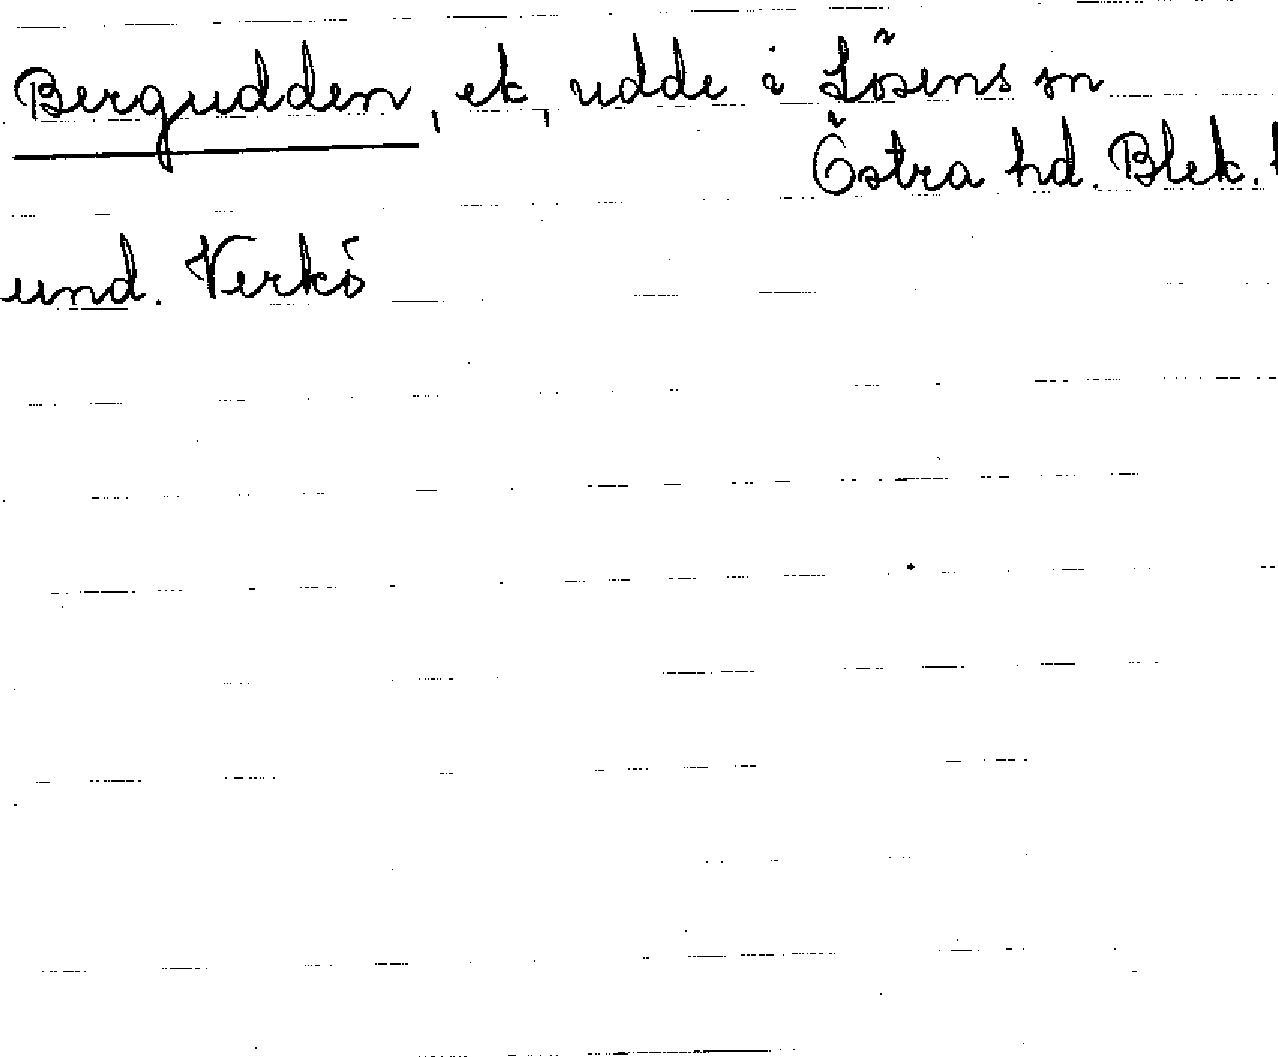 Bergudden, ek, udde i Lösens sn
Östra hd. Blek. l
und. Verkö